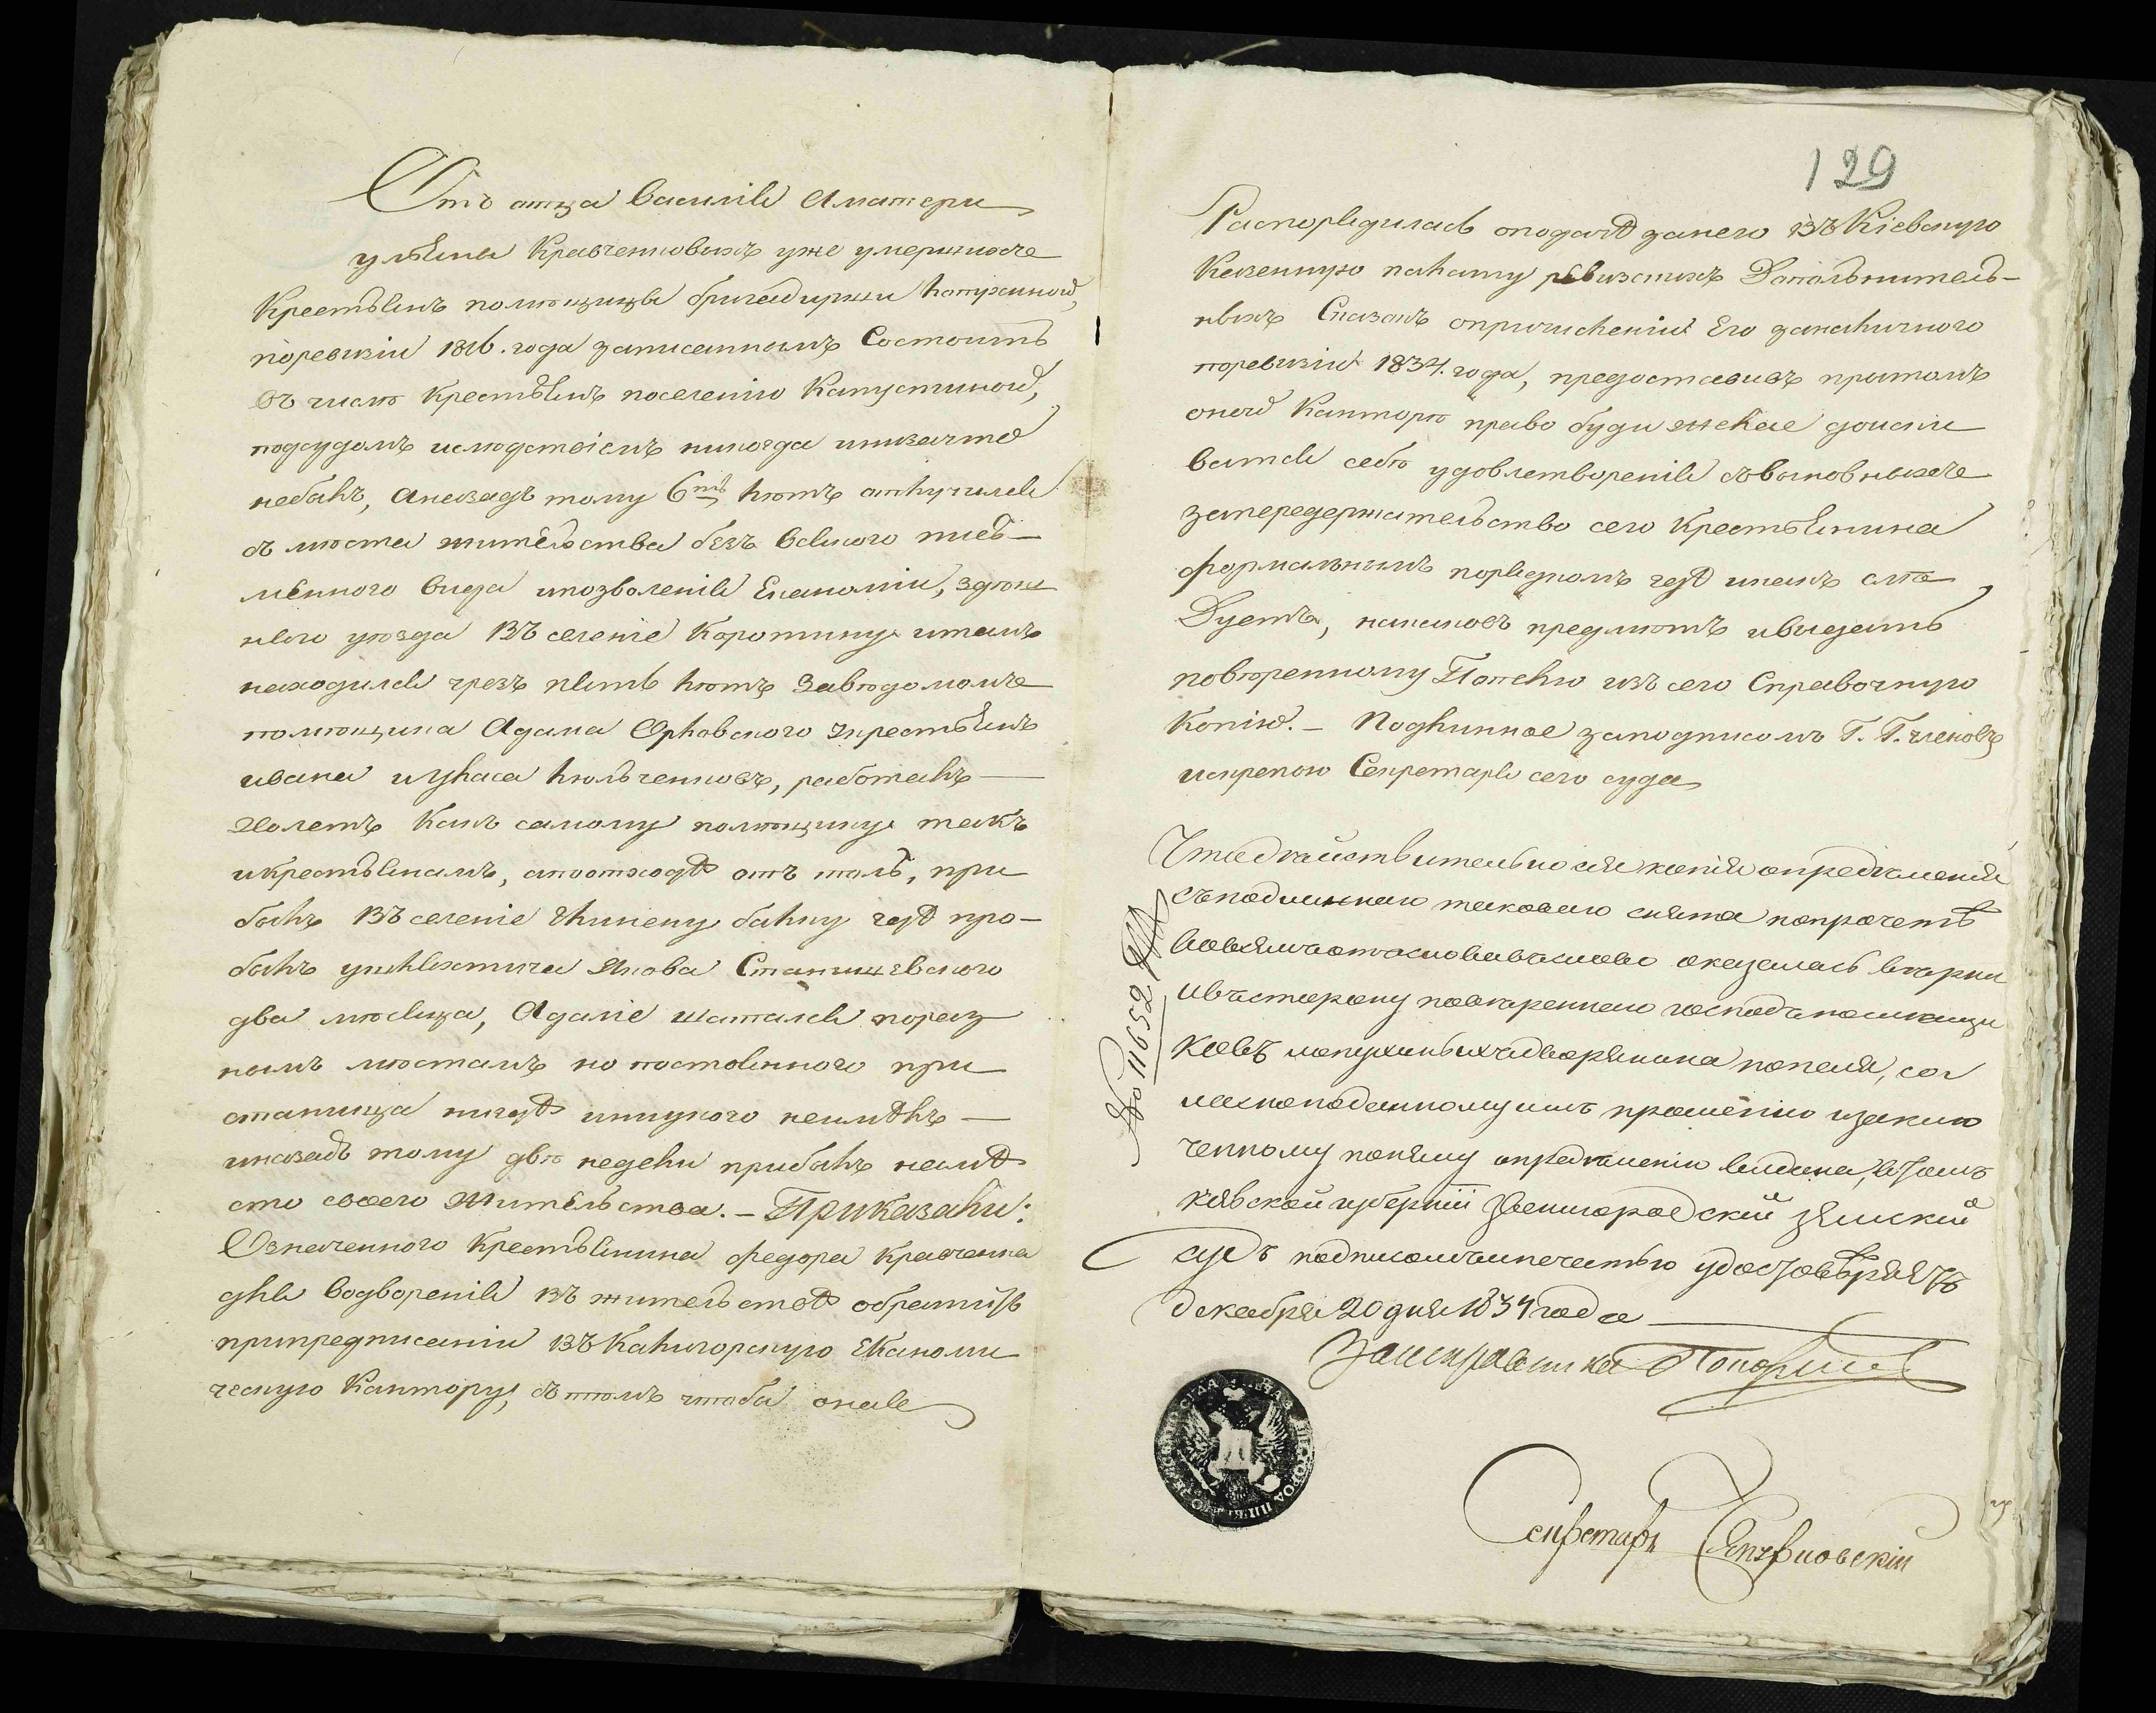 Отъ отца Василія Аматери
ульяны Кравченковыхъ уже умершихъ
Крестьянъ помѣщицы бригадирши Лопухиной,
поревизіи 1816. года записаннымъ Состоитъ
въ числѣ крестьянъ поселенію Капустиной,
подсудомъ ислѣдствіемъ никогда инизачто
небылъ, Аназадъ тому 6ть лѣтъ отлучился
съ мѣста жительства безъ всякого пись-
меннаго вида ипозволенія Економіи, здѣш
няго уѣзда въ селеніе Коротину итамъ
находился чрезъ пять лѣтъ Завѣдомомъ
помѣщика Адама Орловского укрестьянъ
ивана илукаса Люльченковъ, работалъ
Какъ самому помѣщику такъ
икрестьянамъ, апоотходѣ отъ толь, при
былъ въ селеніе Глиняну балку гдѣ про-
былъ ушляхтича Якова Станишевского
два мѣсяца, Адалѣе шатался пораз
нымъ мѣстамъ но постояннаго при
станища нигдѣ иникукого неимѣлъ
иназадъ тому двѣ недели прибылъ намѣ
сто своего жительства. – Приказали:
Означенного Крестьянина Федора Кравченка
для водворенія въ жительствѣ обратить
припредписаніи въ Калигорскую Економи
ческую Кантору, съ тѣмъ чтобы оная
129
Распорядилась оподачѣ занего въ Кіевскую
Казенную палату ревизскихъ Дополнитель-
ныхъ Сказокъ опричисленіи Его заналичного
поревизіи 1834. года, предоставивъ притомъ
оной Канторѣ право буди пожелае доиски
ваться себѣ удовлетворенія съвиновныхъ
запередержательство сего Крестьянина
формальнымъ порядкомъ гдѣ икакъ слѣ
Дуетъ, наковой предмѣтъ ивыдать
повѣренному Попелю изъ сего Справочную
Копію. – Подлинное заподписомъ Г. Г. членовъ
искрепою Секретаря сего суда
Чтодѣйствительно сія копія опредѣленія
съподлинною таковою снята попрочетѣ
вовсемъотсловавъслово оказалась вѣрни
ивъсторону повѣренного господъпомѣщи
ковъ лопухиныхъдворянина попеля, сог
ласноподанному имъ прошенію изаклю
ченному посему опредѣленію выдана, втомъ
кіевской губерніи Звенигородскій земскій
судъ подписомъипечатью удостовѣряетъ
декабря 20 дня 1834 года
№ 11652
Заисправника
Секретарь